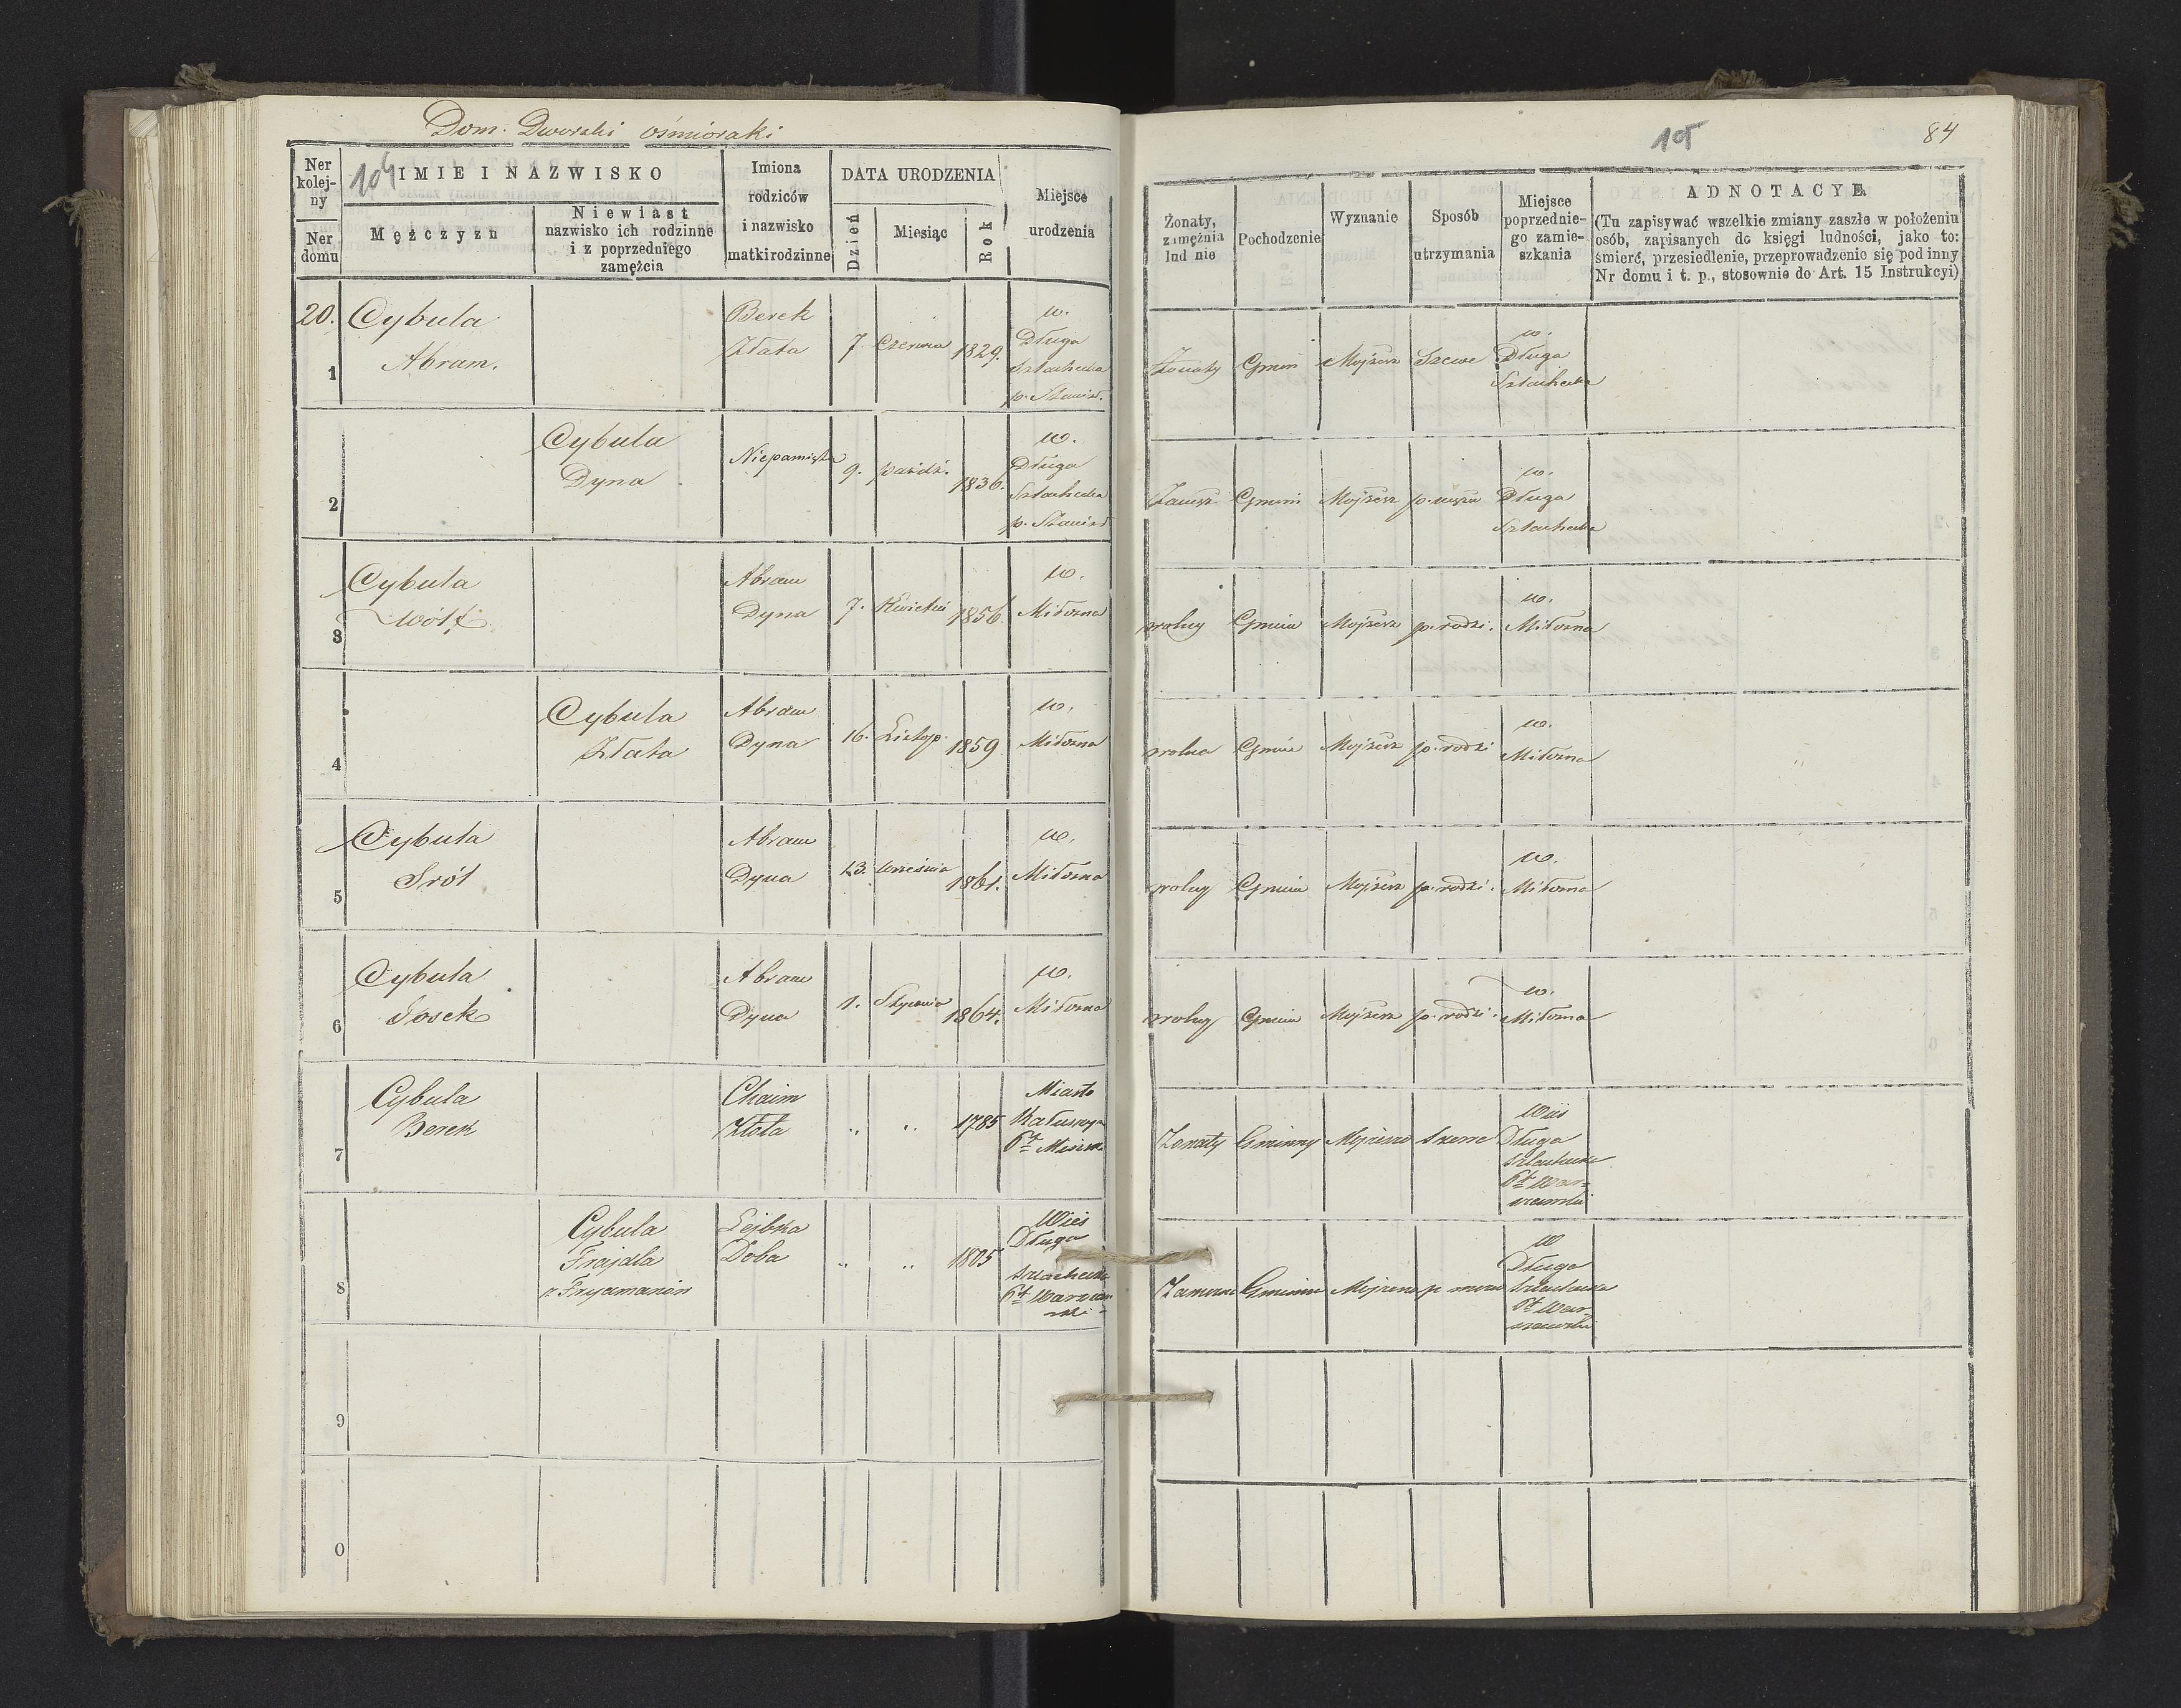 Dom. Dworski ośmioraki
104
Ner
kolej-
ny
Ner
domu
IMIE I NAZWISKO
Mężczyzn
Niewiast
nazwisko ich rodzinne
i z poprzedniego
zamężcia
Imiona
rodziców
i nazwisko
matki rodzinne
DATA URODZENIA
Dzień
Miesiąc
Rok
Miejsce
urodzenia
20.
1
Cybula
Abram.
Berek
Złata
7.
Czerwca
1829.
w.
Długa
Szlachecka
p. Stanisł.
2
Cybula
Dyna
Niepamięta
9.
paźdz.
1836.
w.
Długa
Szlachecka
p. Stanisł
3
Cybula
Wólf
Abram
Dyna
7.
Kwietni
1856.
w.
Miłosna
4
Cybula
Złata
Abram
Dyna
16.
Listop.
1859
w.
Miłosna
5
Cybula
Sról
Abram
Dyna
13.
Września
1861.
w.
Miłosna
6
Cybula
Josek
Abram
Dyna
1.
Stycznia
1864.
w.
Miłosna
7
Cybula
Berek
Chaim
Złota
"
"
1785
Miasto
Kałuszyn
Pt Mińsk
8
Cybula
Frajdla
z Fryamanów
Lejbka
Doba
"
"
1805
Wieś
Długa
szlachecka
Pt Warszaw
ski
9
0
105
84
Żonaty,
zamężnia
lud nie
Pochodzenie
Wyznanie
Sposób
utrzymania
Miejsce
poprzednie-
go zamie-
szkania
ADNOTACYE
(Tu zapisywać wszelkie zmiany zaszłe w położeniu
osób, zapisanych do księgi ludności, jako to:
śmierć, przesiedlenie, przeprowadzenie się pod inny
Nr domu i t. p., stosownie do Art. 15 Instrukcyi)
Żonaty
Gmin
Mojżesz
Szewc
w.
Długa
Szlachecka
Zamęż
Gmin
Mojżesz
p. mężu
w.
Długa
Szlachecka
wolny
Gmin
Mojżesz
p. rodzi.
w.
Miłosna
wolna
Gmin
Mojżesz
p. rodzi
w.
Miłosna
wolny
Gmin
Mojżesz
p. rodzi.
w.
Miłosna
wolny
Gmin
Mojżesz
p. rodzi.
w.
Miłosna
Żonaty
Gminny
Mojżesz
Szewc
Wieś
Długa
szlachecka
Pt War-
szawski
Zamężna
Gminna
Mojżesz
p mężu
w
Długa
szlachecka
Pt War
szawski